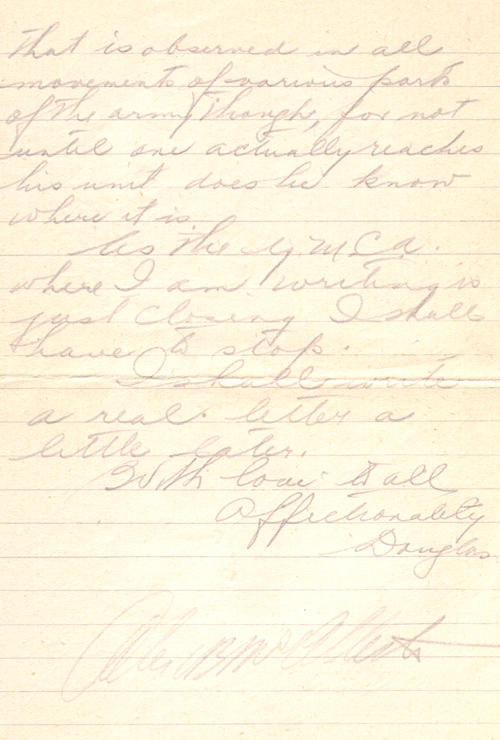 that is observed in all
movements of various parts
of the army though, for not
until one actually reaches
his unit does he know
where it is.
As the Y.M.C.A.
where I am writing is
just closing I shall
have to stop.
I shall write
a real letter a
little later.
With love to all
Affectionately
Douglas